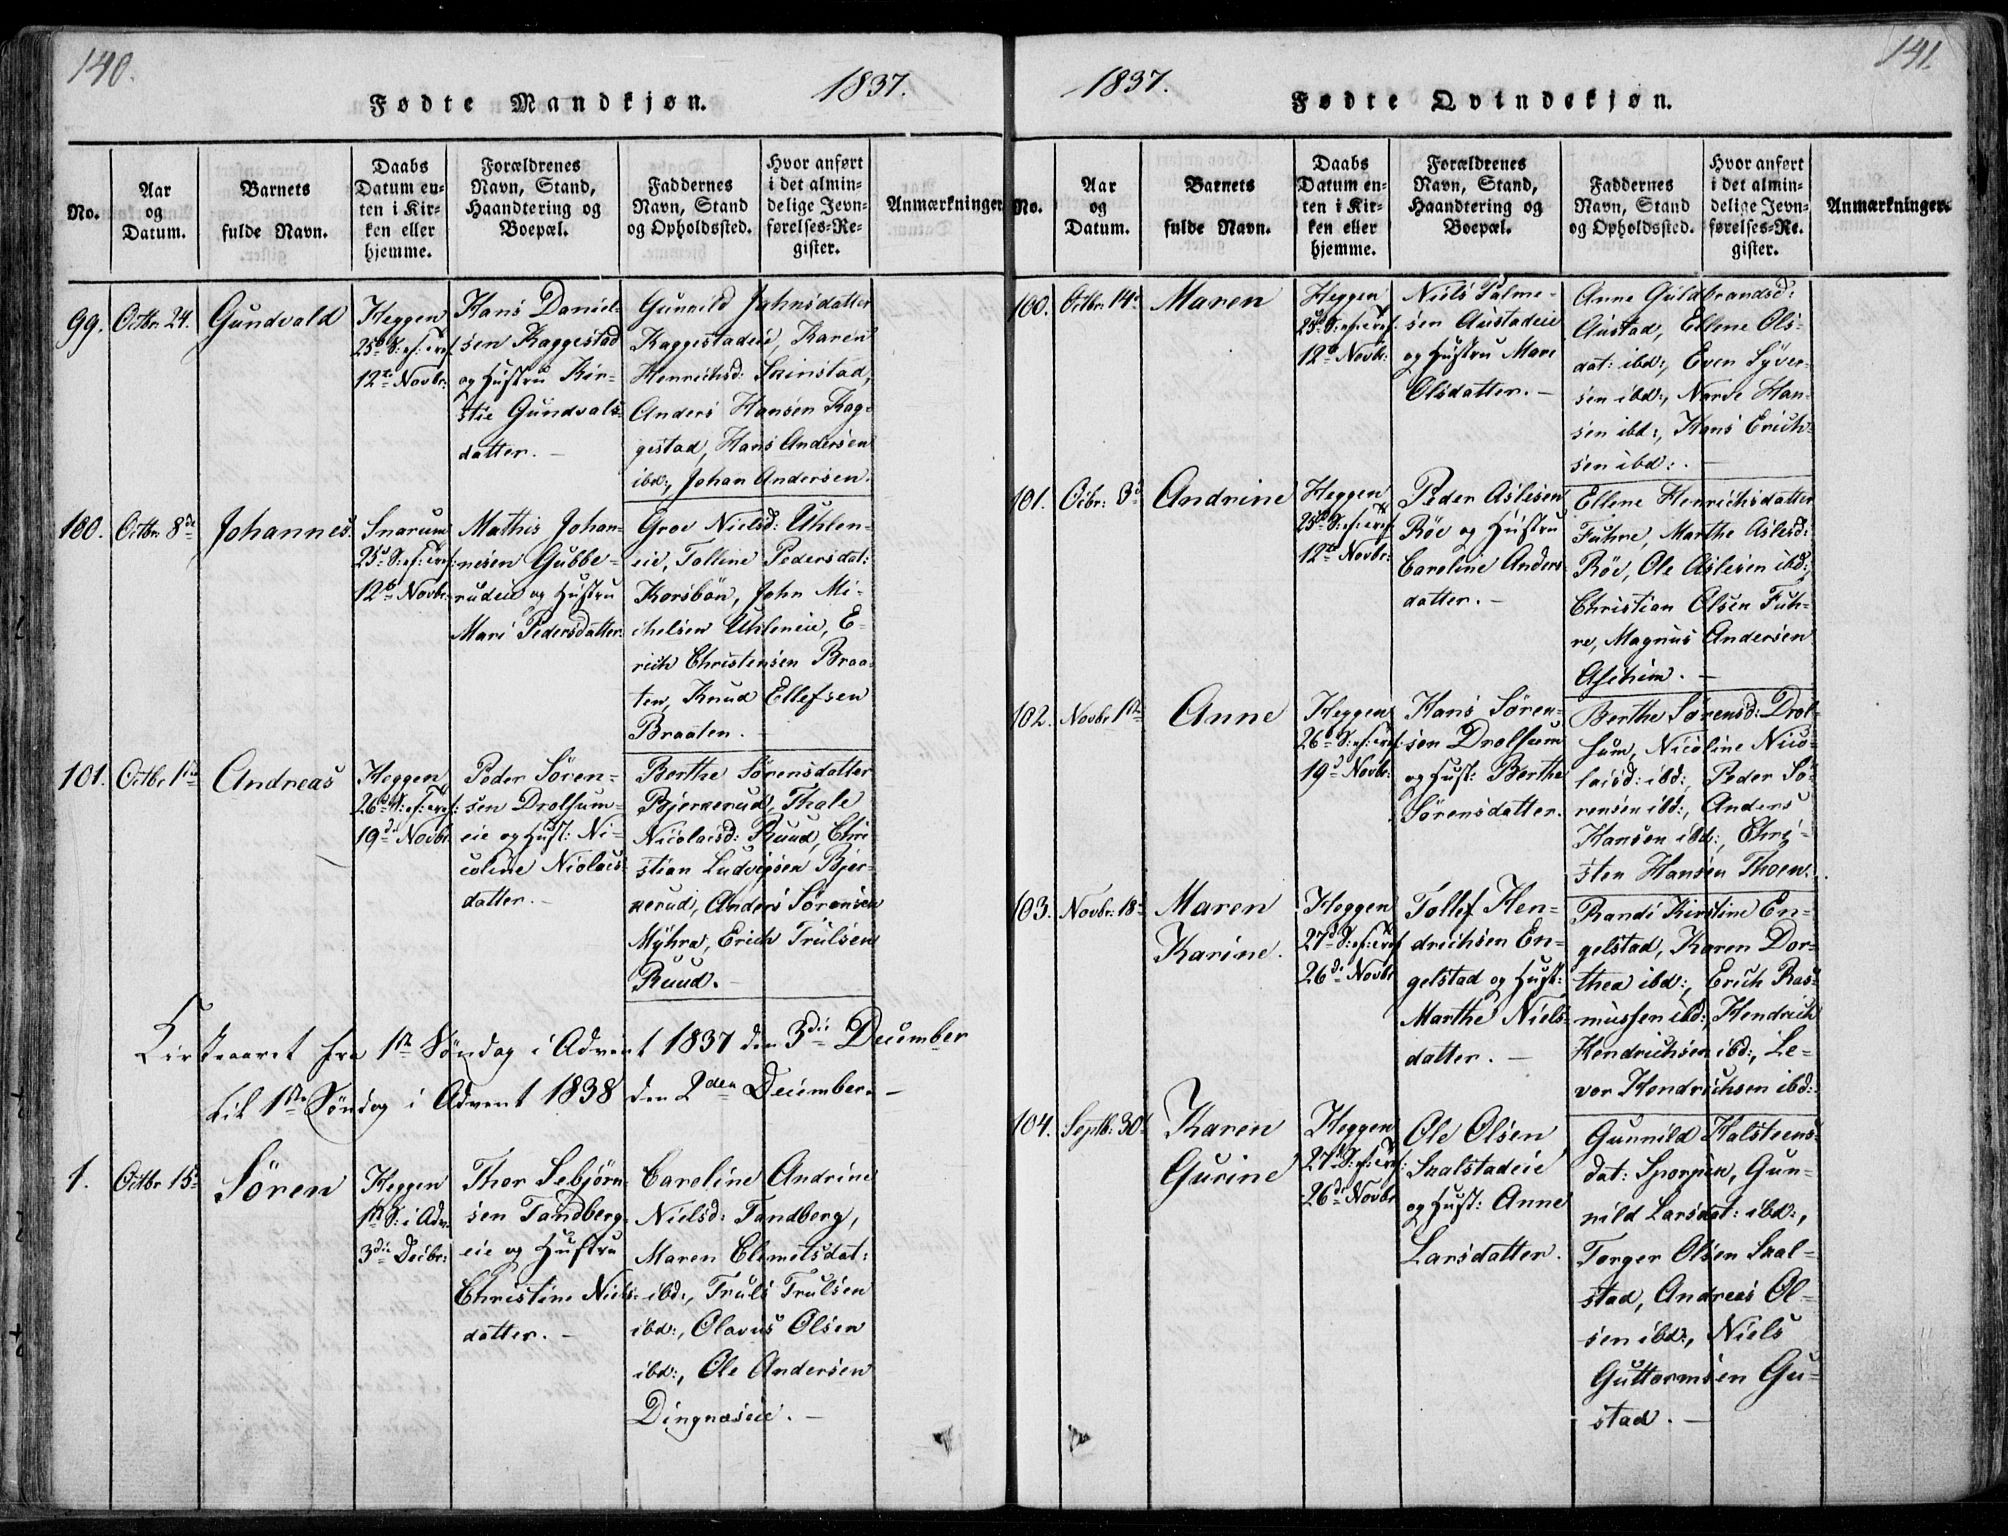 140.
Fødte Mandkjøn.
1837.
No.
Aar
og
Datum.
Barnets
fulde Navn.
Daabs
Datum en-
ten i Kir-
ken eller
hjemme.
Forældrenes
Navn, Stand,
Haandtering og
Boepæl.
Faddernes
Navn, Stand
og Opholdssted.
Hvor anført
i det almin-
delige Jevn-
førelses-Re-
gister.
Anmærkninger.
99.
Octbr 24.
Gundvald
Heggen
25d S: ef: Tref.
12te Novbr:
Hans Daniel-
sen Kaggestad
og Hustru Kir-
stie Gundvals-
datter. —
Gunnild Johnsdatter
Kaggestadeie, Karen
Henrichsd: Skinstad,
Anders Hansen Kag-
gestad, Hans Andersen
ibd:, Johan Andersen.
100.
Octbr 8de
Johannes.
Snarum
25d S: ef: Tref:
12te Novbr:
Mathis Johan-
nesen Gubbe-
rudeie og Hustru
Mari Pedersdatter.
Groe Nielsd: Uhlen-
eie, Tolline Pedersdat:
Korsbøn, John Mi-
chelsen Uhleneie, E-
rich Christensen Braa-
ten, Knud Ellefsen
Braaten. —
101.
Octbr 1ste
Andreas
Heggen
26d S: ef: Tref:
19de Novbr.
Peder Søren-
sen Drolsum-
eie og Hust: Ni-
coline Nicolais-
datter. —
Berthe Sørensdatter
Bjerkerud, Thale
Nicolaisd: Ruud, Chri-
stian Ludvigsen Bjer-
kerud, Anders Sørensen
Myhra, Erich Trulsen
Ruud. —
Kirkeaaret fra 1ste Søndag i Advent 1837 den 3die December
til 1ste Søndag i Advent 1838 den 2den December. —
1.
Octbr 15de
Søren
Heggen
1ste S: i Adv.
3die Decbr:
Thor Lebjørn-
sen Tandberg-
eie og Hustru
Christine Niels-
datter. —
Caroline Andrine
Nielsd: Tandberg,
Maren Clemetsdat:
ibd:, Truls Trulsen
ibd:, Olavus Olsen
ibd:, Ole Andersen
Dingnæseie. —
141.
1837.
Fødte Qvindekjøn.
No.
Aar
og
Datum.
Barnets
fulde Navn.
Daabs
Datum en-
ten i Kir-
ken eller
hjemme.
Forældrenes
Navn, Stand,
Haandtering og
Boepæl.
Faddernes
Navn, Stand
og Opholdssted.
Hvor anført
i det almin-
delige Jevn-
førelses-Re-
gister.
Anmærkninger.
100.
Octbr: 14de
Maren
Heggen
25d S: ef: Tref:
12te Novbr:
Niels Palme-
sen Austadeie
og Hustru Mari
Olsdatter. —
Anne Guldbrandsd:
Austad, Ellene Ols-
dat: ibd:, Even Syver-
sen ibd:, Narve Han-
sen ibd:, Hans Erich-
sen ibd:. —
101.
Ocbr: 3de
Andrine
Heggen
25d S: ef: Tref:
12te Novbr:
Peder Aslesen
Røe og Hustru
Caroline Anders-
datter. —
Ellene Henrichsdatter
Fuhre, Marthe Aslesd:
Røe, Ole Aslesen ibd:,
Christian Olsen Fuh-
re, Magnus Andersen
Aschim. —
102.
Novbr 1ste
Anne
Heggen
26d S: ef: Tref:
19de Novbr:
Hans Søren-
sen Drolsum
og Hust: Berthe
Sørensdatter.
Berthe Sørensd: Drol-
sum, Nicoline Nico-
laisd: ibd:, Peder Sø-
rensen ibd:, Anders
Hansen ibd:, Chri-
sten Hansen Thoen.
103.
Novbr: 18de
Maren
Karine.
Heggen
27d S: ef: Tref
26de Novbr
Tollef Hen-
drichsen En-
gelstad og Hust:
Marthe Niels-
datter. —
Randi Kirstine En-
gelstad, Karen Dor-
thea ibd:, Erich Ras-
mussen ibd:, Hendrich
Hendrichsen ibd:, Le-
vor Hendrichsen ibd:
104.
Septb: 30te
Karen
Gurine
Heggen
27d S: ef: Tref:
26de Novbr
Ole Olsen
Skalstadeie
og Hust: Anne
Larsdatter.
Gunnild Halsteens-
dat: Sporpin, Gun-
nild Larsdat: ibd:,
Torger Olsen Skal-
stad, Andreas Ol-
sen ibd:, Niels
Guttormsen Gu-
stad. —